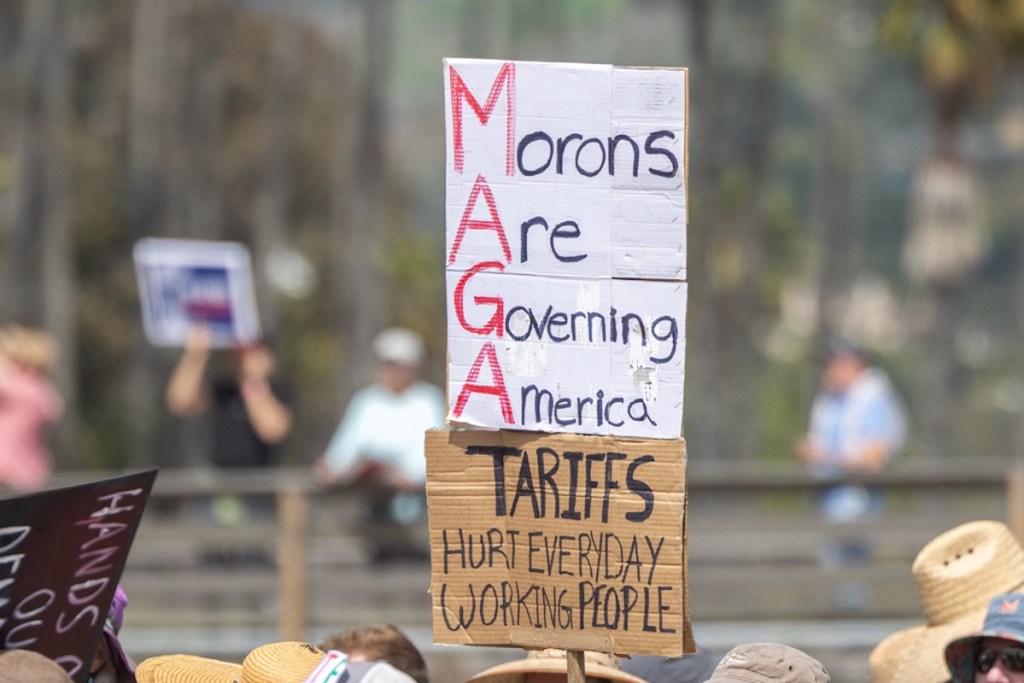 Morons
Are
Governing
America
TARIFFS
HURT EVERYDAY
WORKING PEOPLE
HANDS
OU